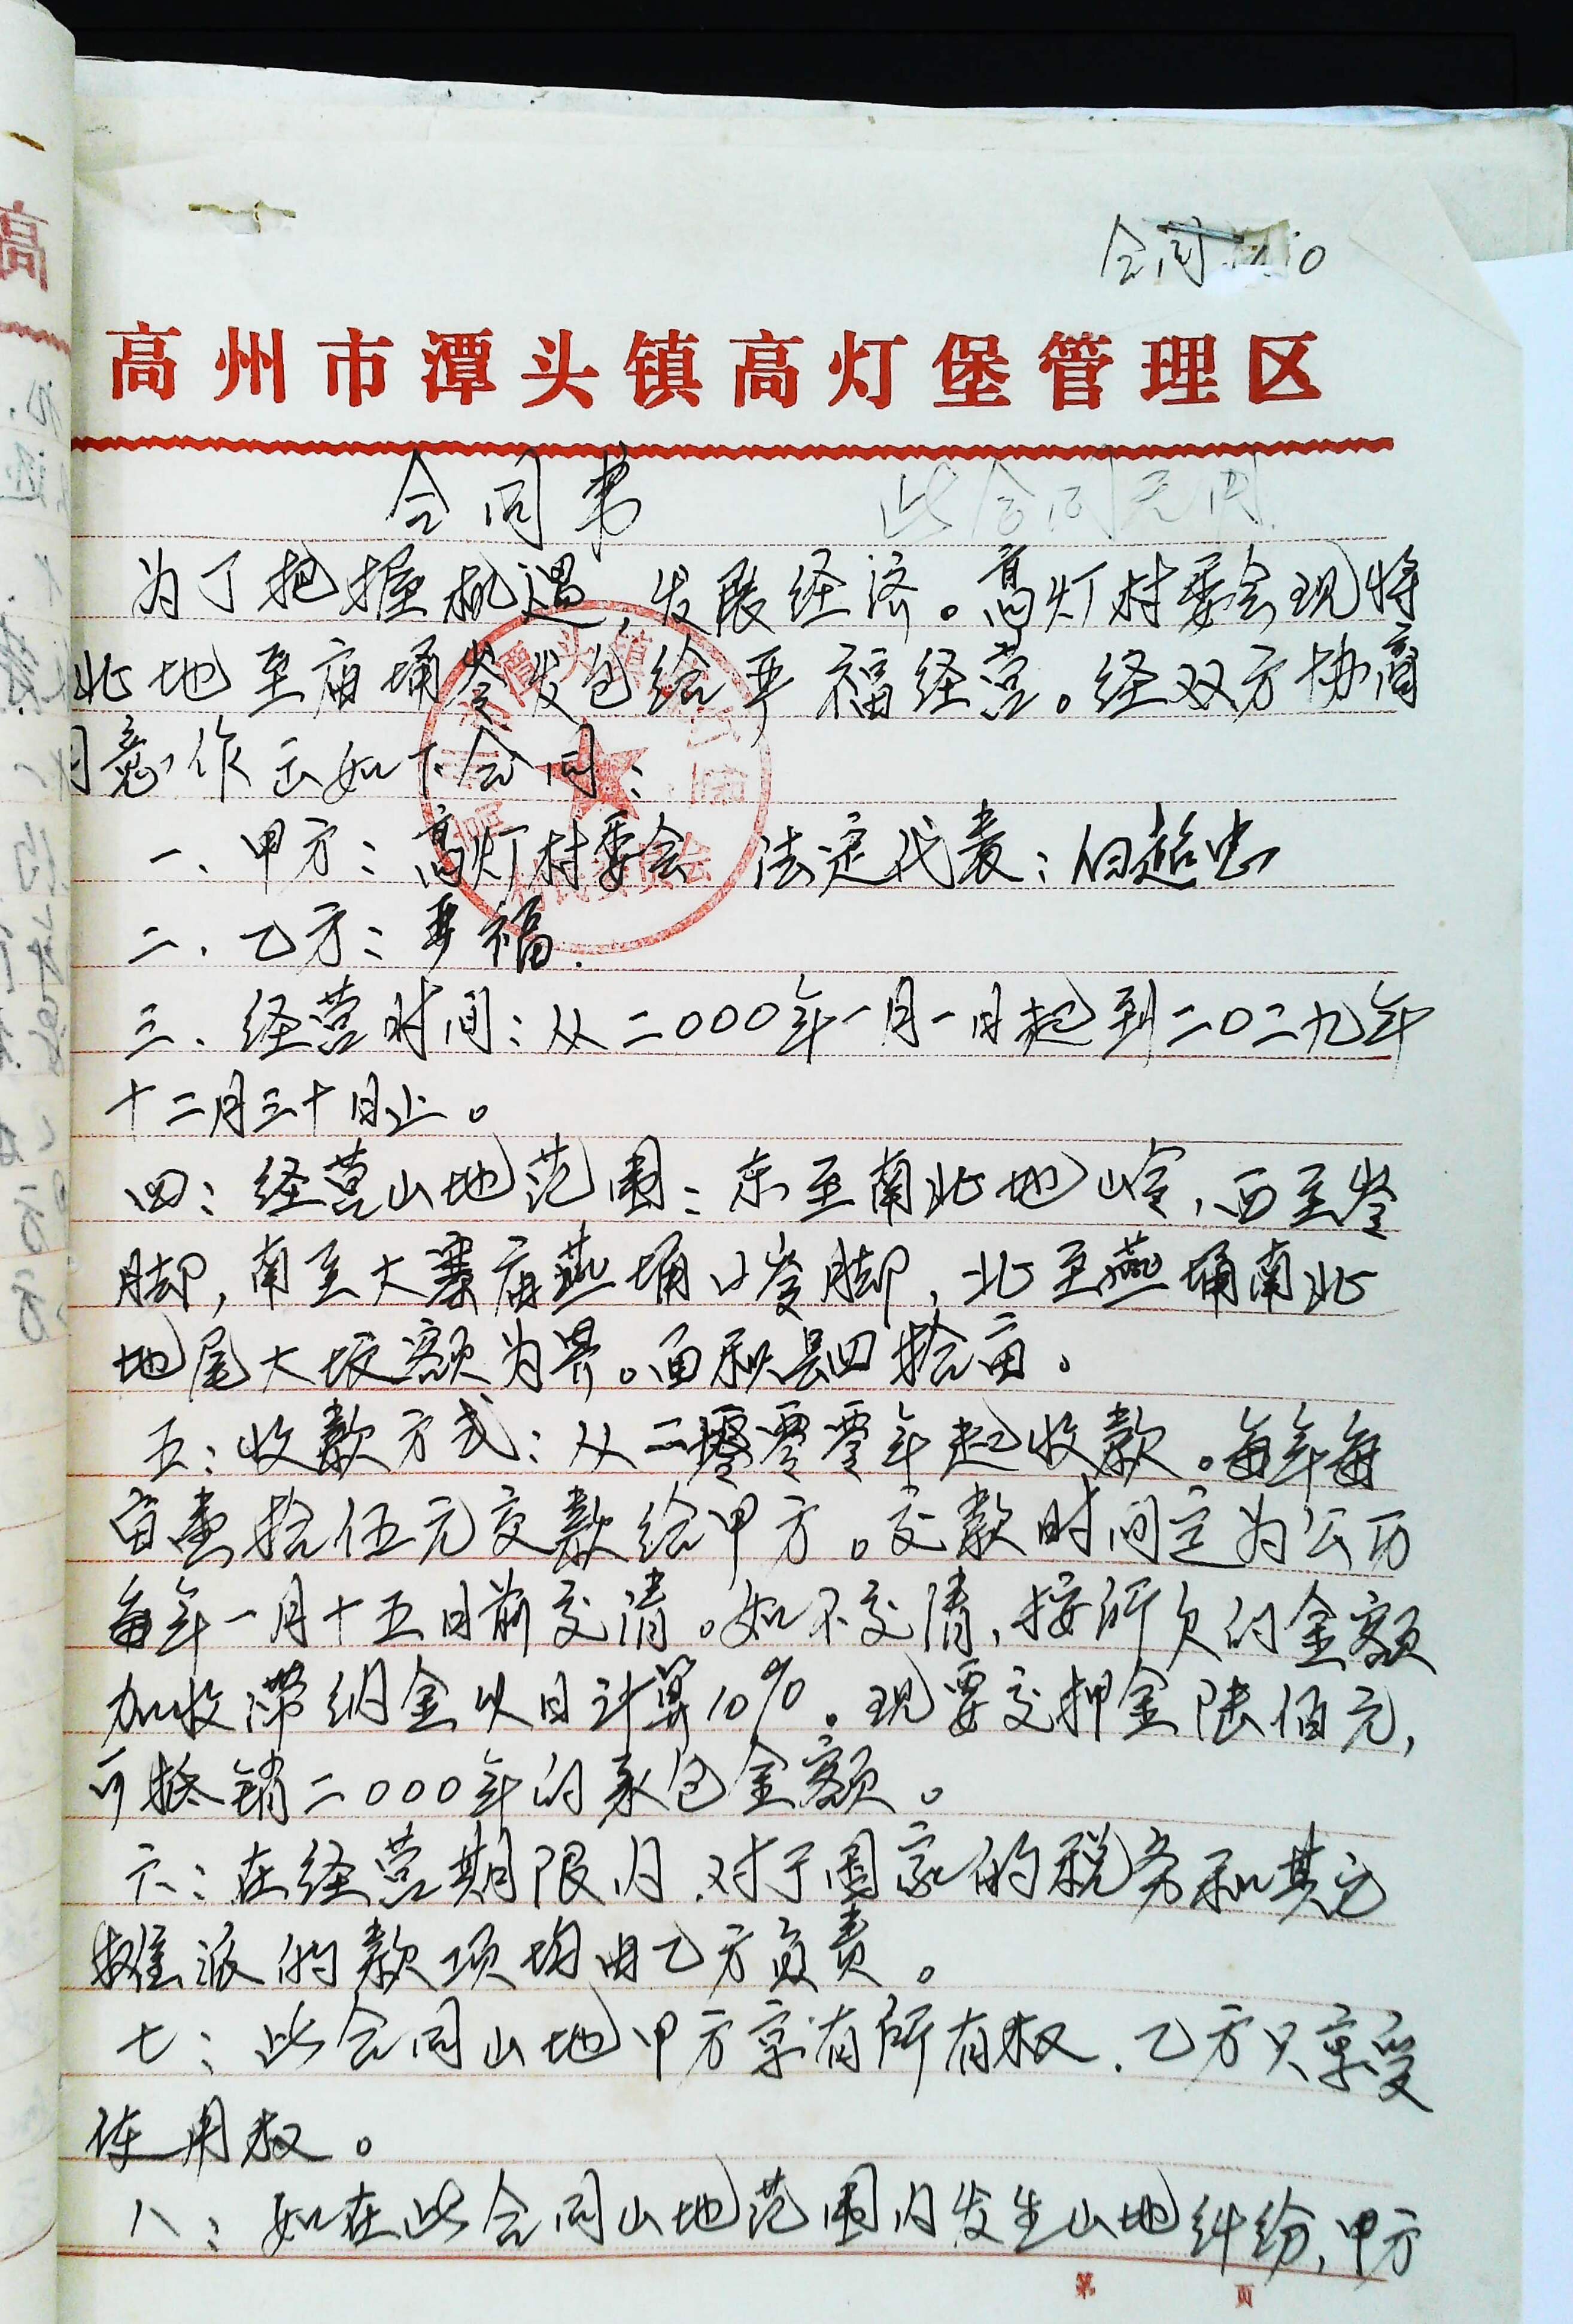 合同 10
高州市潭头镇高灯堡管理区
合同书 此合同无内
为了把握机遇，发展经济。高灯村委会现将
北地至庙埇岺发包给 福经营。经双方协商
同意作出如下合同：
一、甲方：高灯村委会 法定代表：伯超忠
二、乙方： 福.
三、经营时间：从二000年一月一日起到二0二九年
十二月三十日止。
四：经营山地范围：东至南北地 ，西至岺
脚，南至大寨庙燕埇口岺脚，北至燕埇南北
地尾大坂额为界。面积是四拾亩。
五：收款方式：从二零零零年起收款。每年每
亩壹拾伍元交款给甲方。交款时间定为公历
每年一月十五日前交清。如不交清，按所欠的金额
加收滞纳金以日计算10%。现要交押金陆佰元，
可抵销二000年的承包金额。
六：在经营期限内、对于国家的税务和其它
摊派的款项均由乙方负责。
七：此合同山地甲方享有所有权．乙方只享受
使用权。
八：如在此合同山地范围内发生山地纠纷，甲方
第 页